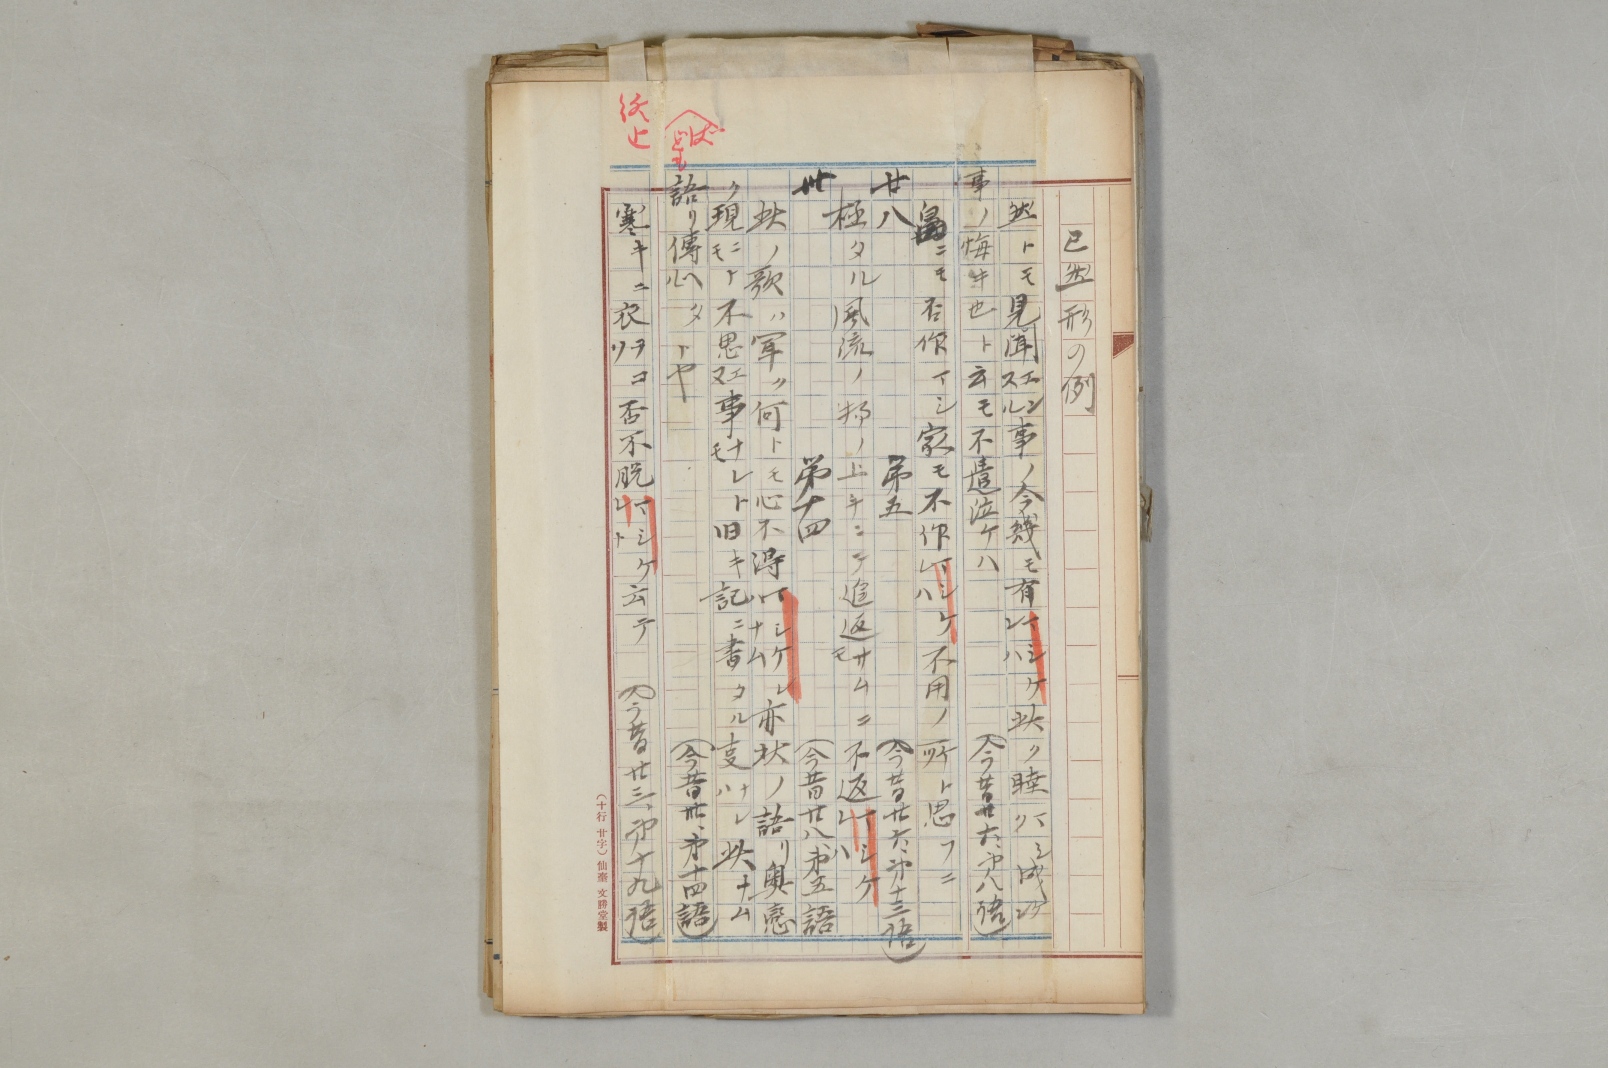 已然形の例
然トモ見聞スルエン事ノ今幾モ有マシケンハ此ク睦マシク成ケン
事ノ悔キ也ト云モ不遣泣ケハ
(今昔廿六、第八語)
畠ニモ否作マシ家モ不作マシケレハ不用ノ所ト思フニ
(今昔廿六、第十三語)
廿八 第五
極タル風流ノ物ノ上手ニテ追返サムニモ不返マシケレハ
(今昔廿八第五語
卅 第十四
此ノ歌ハ軍ッ何トモ心不得マシケレハナム亦此ノ語リ奥
ク現ニモト不思エヌ事ナレトモ旧キ記ニ書タル事ナレハ此ナム
語リ傳ヘタトヤ
(今昔卅、第十四語)
寒キニ衣ヲコソ否不脱マシケレト云テ
(今昔廿三、第十九語)
終止
ば
ども
(十行 廿字) 仙臺 文勝堂製